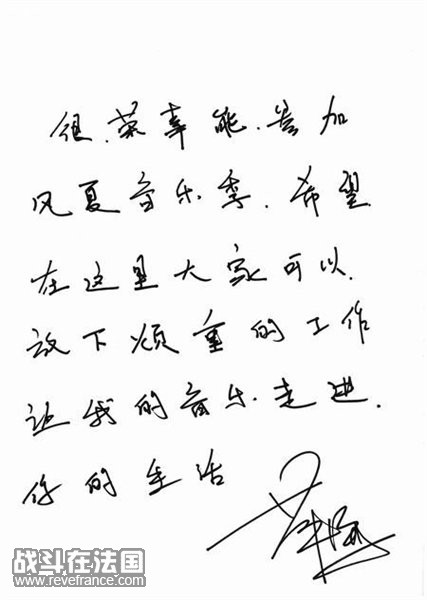 很荣幸能参加
风夏音乐季.希望
在这里大家可以
放下烦重的工作
让我的音乐走进
你的生活
战斗在法国
www.revefrance.com